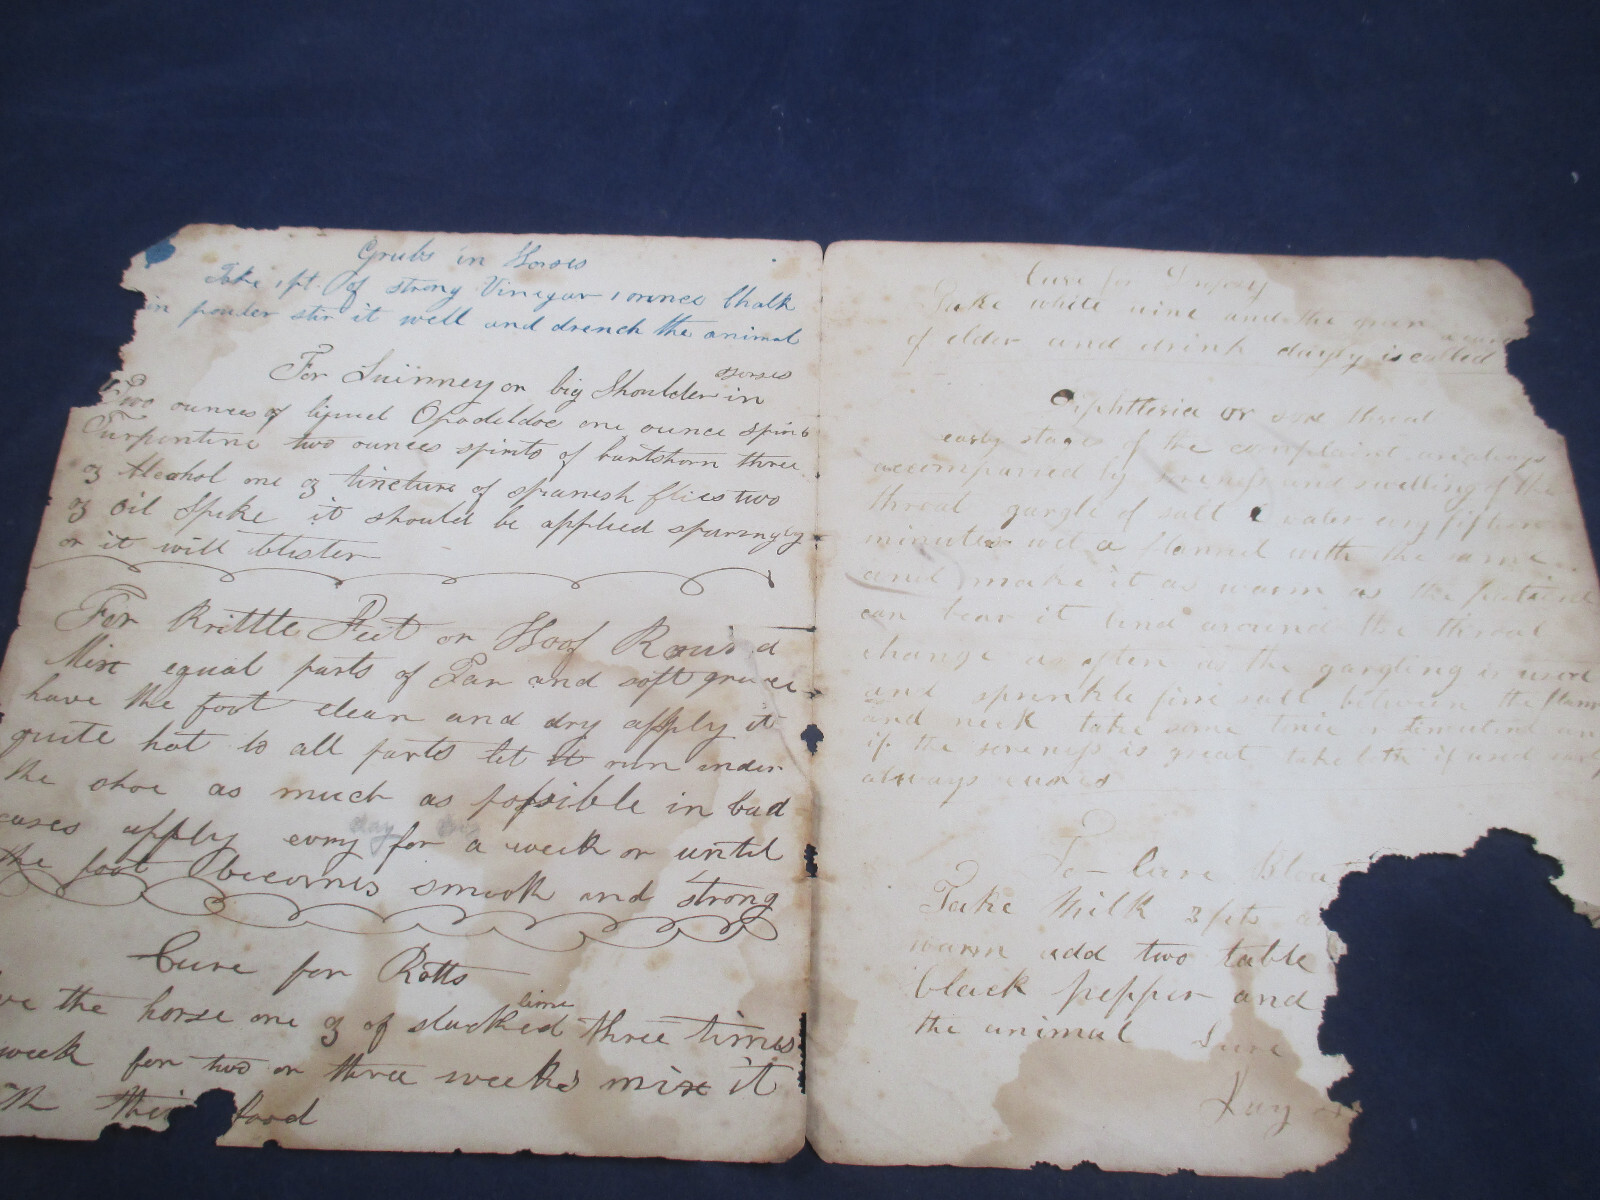 Grubs in Horses
Take 1 pt. of strong Vinegar 1 ounce Chalk
in pouder stir it well and drench the animal
For Suinney or big Shoulder in horses
Two ounces of liquid Opodeldoc one ounce spirits
Turpentine two ounces spirits of hartshorn three
oz Alcohol one oz tincture of spanish flies two
oz oil Spike it should be applied sparingly
or it will blister
For Brittle Feet or Hoof Bound
Mix equal parts of Tar and soft greace
have the foot clean and dry apply it
quite hot to all parts let it run under
the shoe as much as possible in bad
cases apply evry day for a week or until
the foot becomes smooth and strong
Cure for Botts
the horse one oz of slacked lime three times
week for two or three weeks mix it
food
Cure for
Take white wine and the green
of elder and drink
Diphtheria or sore throat
early stage of the complaint
accompanied by soreness and swelling of the
throat gargle of salt & water evry fifteen
minutes wet a flannel with the same
and make it as warm as the patient
can bear it bind around the throat
change as often as the gargling is used
and sprinkle fine salt between the
and neck take some tonic
if the soreness is great take both if used
always cures
To Cure
Take Milk 3 pts
warm add two table
black pepper and
the animal Sure